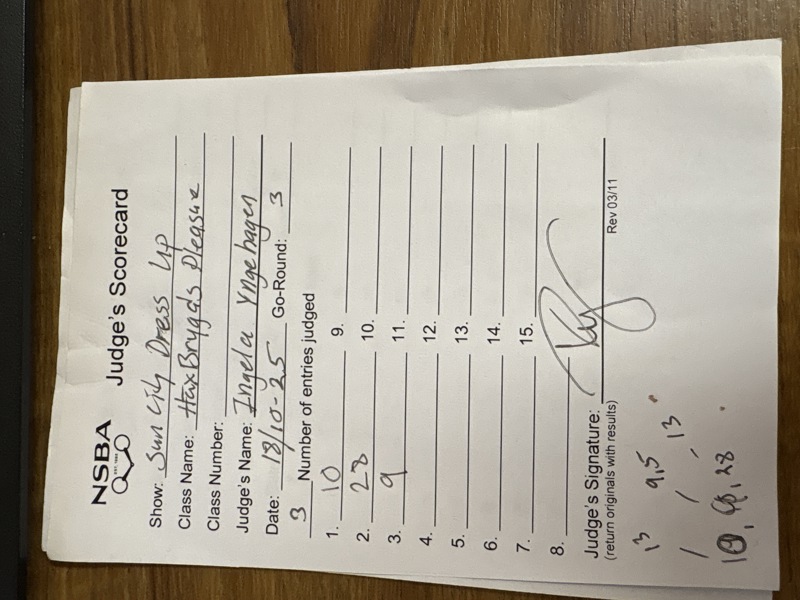 NSBA
EST. 1983
Judge's Scorecard
Show: Sun City Dress Up
Class Name: HaxBryggds Pleasure
Class Number:
Judge's Name: Ingela Yngehagen
Date: 18/10-25 Go-Round: 3
3 Number of entries judged
1. 10 9.
2. 28 10.
3. 9 11.
4. 12.
5. 13.
6. 14.
7. 15.
8.
Judge's Signature:
(return originals with results) Rev 03/11
13 9,5 13
28